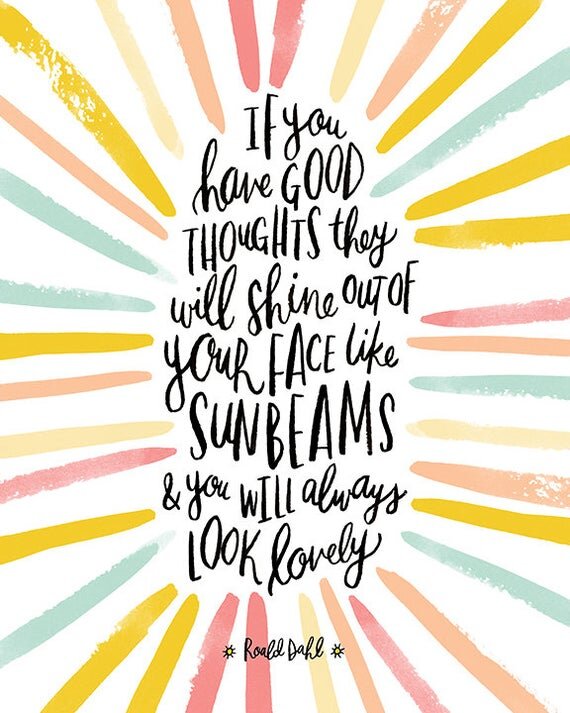 IF you
have GOOD
THOUGHTS they
will shine OUT OF
YOUR FACE like
SUNBEAMS
& you WILL always
LOOK lovely
Roald Dahl